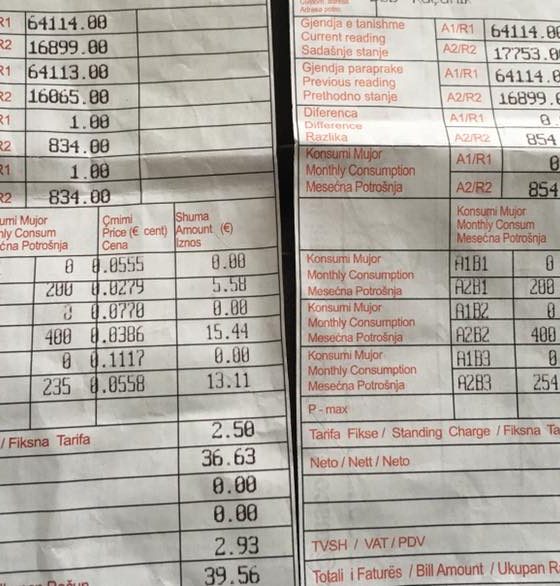 R1 64114.00
R2 16899.00
R1 64113.00
R2 16065.00
R1 1.00
R2 834.00
R1 1.00
R2 834.00
umi Mujor
hly Consum
čna Potrošnja
Çmimi
Price (€ cent)
Cena
Shuma
Amount (€)
Iznos
0 0.0555 0.00
200 0.0279 5.58
0 0.0770 0.00
400 0.0386 15.44
0 0.1117 0.00
235 0.0558 13.11
/ Fiksna Tarifa 2.50
36.63
0.00
0.00
2.93
39.56
Adresa potro.
Gjendja e tanishme
Current reading
Sadašnje stanje
A1/R1 64114.00
A2/R2 17753.0
Gjendja paraprake
Previous reading
Prethodno stanje
A1/R1 64114.0
A2/R2 16899.
Diferenca
Difference
Razlika
A1/R1 0.
A2/R2 854
Konsumi Mujor
Monthly Consumption
Mesečna Potrošnja
A1/R1 0
A2/R2 854
Konsumi Mujor
Monthly Consum
Mesečna Potrošnja
Konsumi Mujor
Monthly Consumption
Mesečna Potrošnja
A1B1 0
A2B1 200
Konsumi Mujor
Monthly Consumption
Mesečna Potrošnja
A1B2 0
A2B2 400
Konsumi Mujor
Monthly Consumption
Mesečna Potrošnja
A1B3 0
A2B3 254
P - max
Tarifa Fikse / Standing Charge / Fiksna Ta
Neto / Nett / Neto
TVSH / VAT / PDV
Totali i Faturës / Bill Amount / Ukupan R